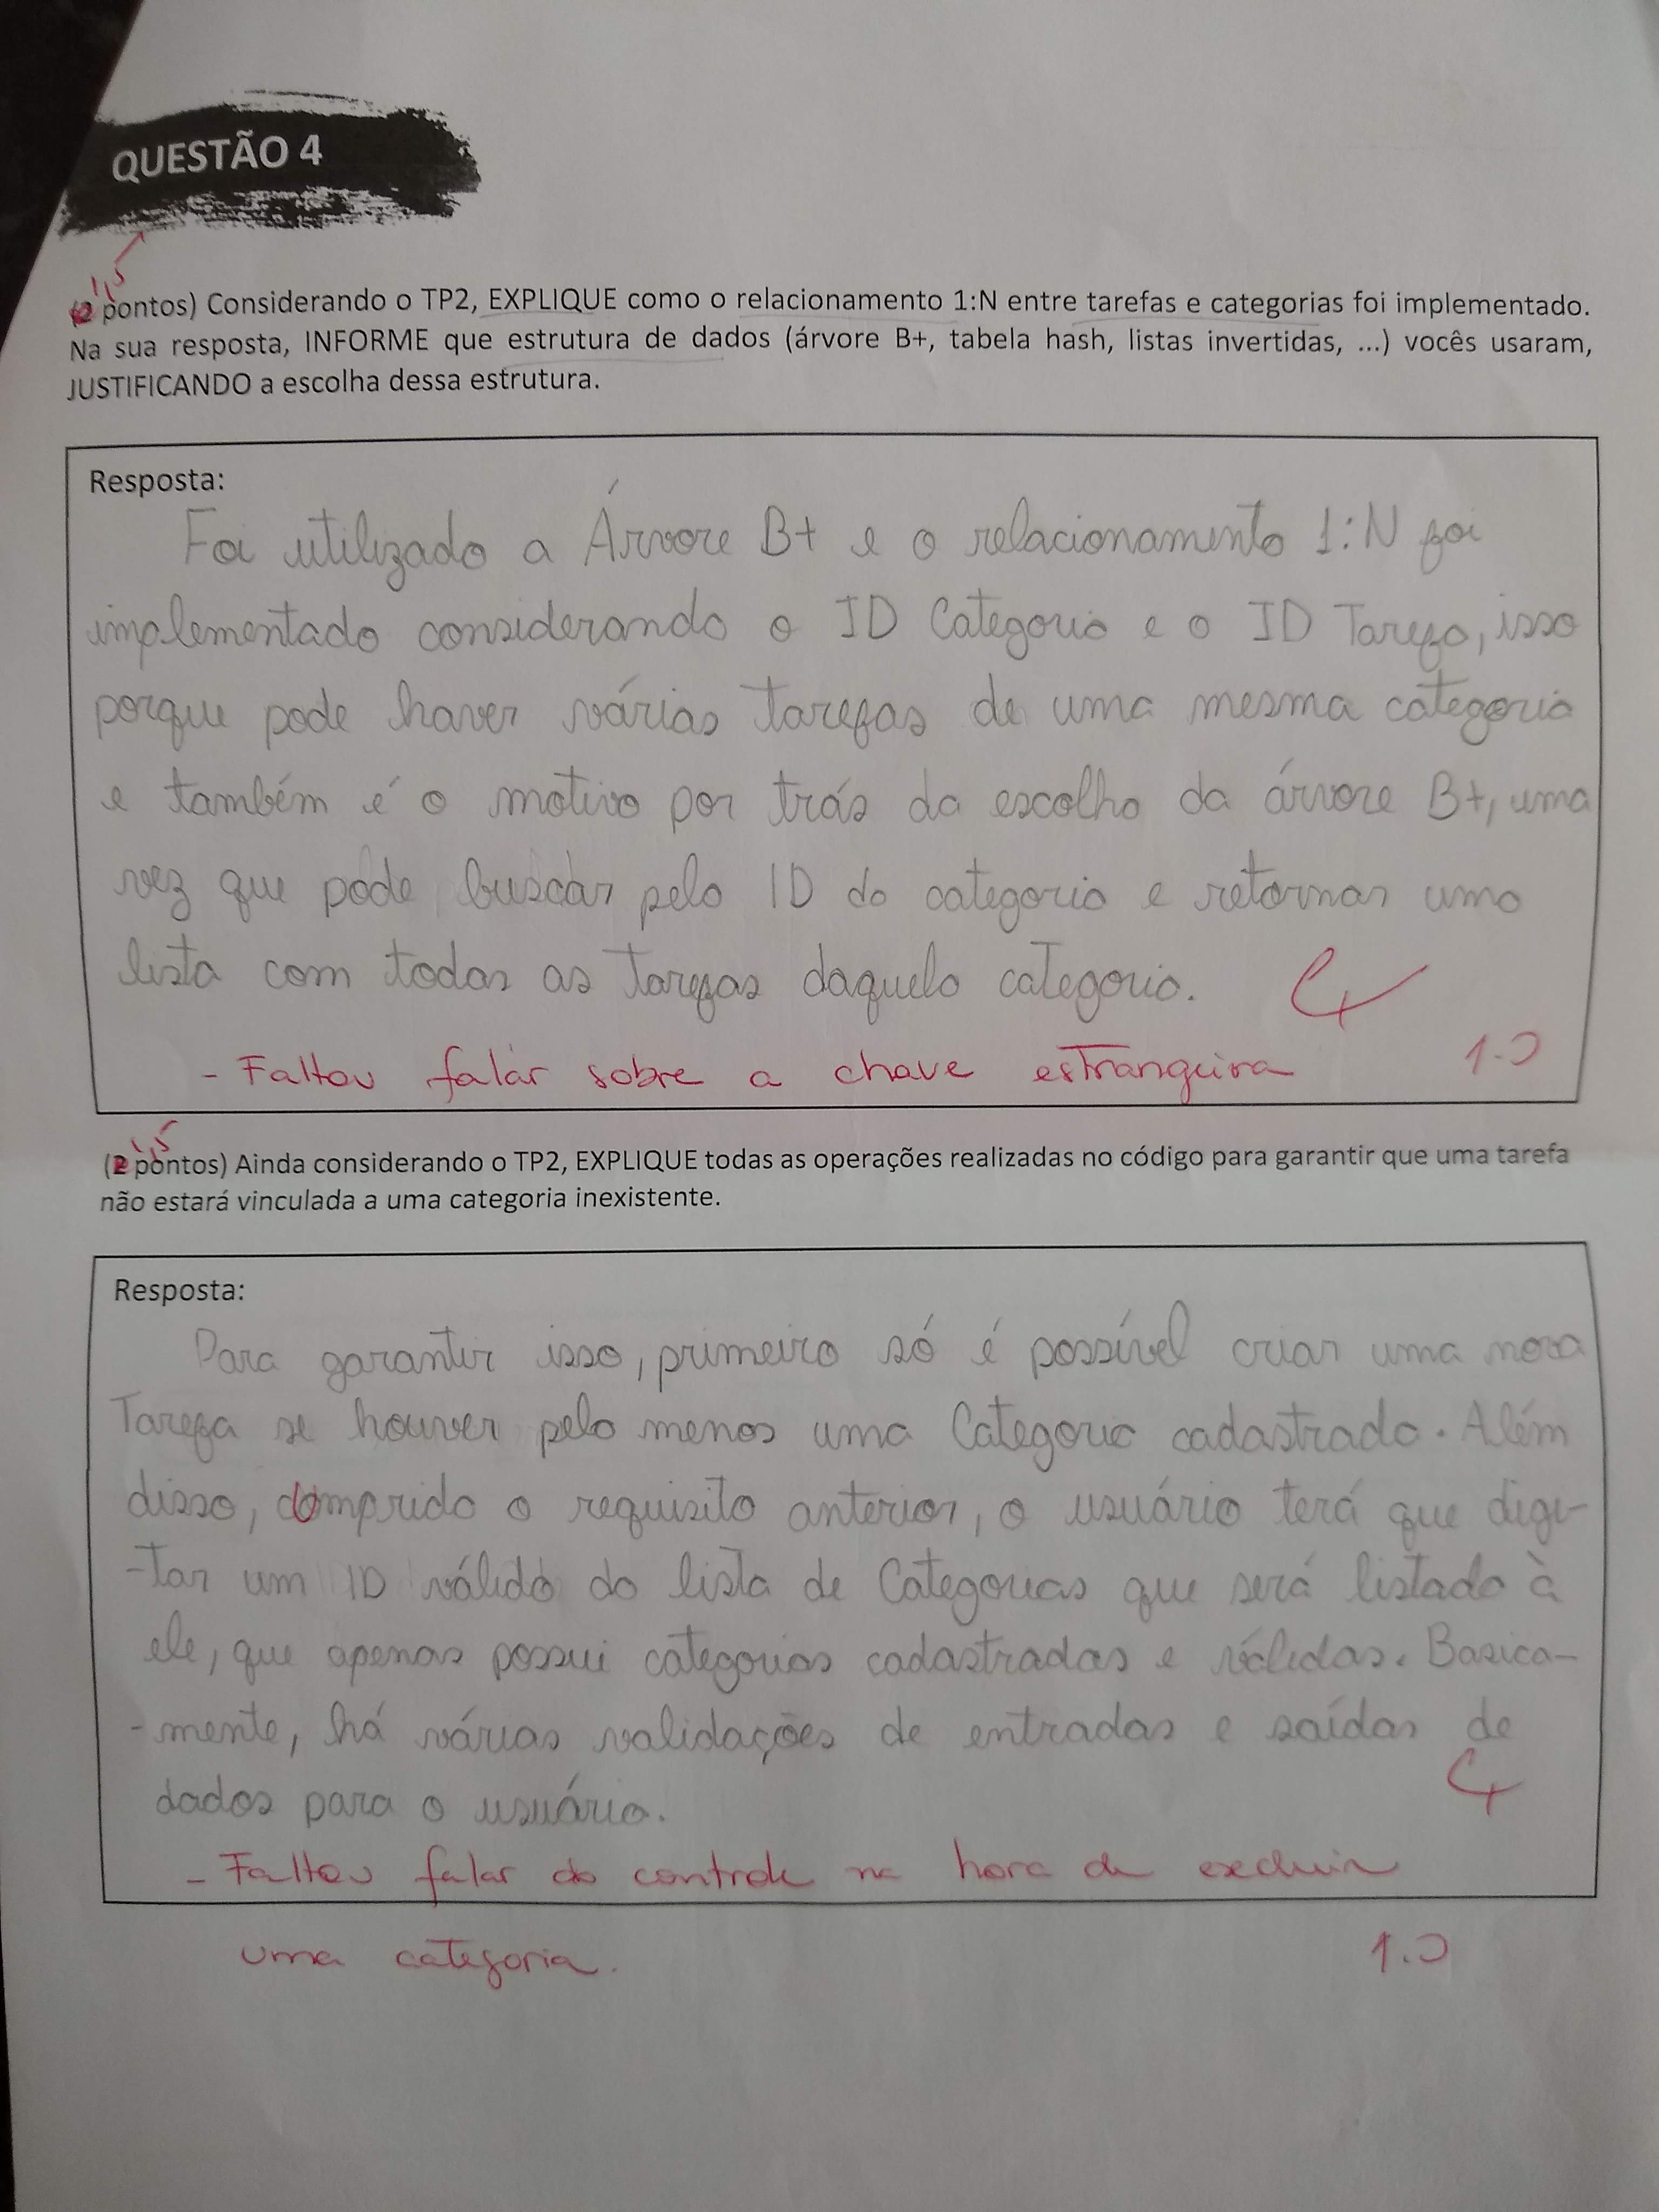 QUESTÃO 4
1,5
(2 pontos) Considerando o TP2, EXPLIQUE como o relacionamento 1:N entre tarefas e categorias foi implementado.
Na sua resposta, INFORME que estrutura de dados (árvore B+, tabela hash, listas invertidas, ...) vocês usaram,
JUSTIFICANDO a escolha dessa estrutura.
Resposta:
Foi utilizado a Árvore B+ e o relacionamento 1:N foi
implementado considerando o ID Categoria e o ID Tarefa, isso
porque pode haver várias tarefas de uma mesma categoria
e também é o motivo por trás da escolha da árvore B+, uma
vez que pode buscar pelo ID da categoria e retornar uma
lista com todas as tarefas daquela categoria.
- Faltou falar sobre a chave estrangeira 1.0
1,5
(2 pontos) Ainda considerando o TP2, EXPLIQUE todas as operações realizadas no código para garantir que uma tarefa
não estará vinculada a uma categoria inexistente.
Resposta:
Para garantir isso, primeiro só é possível criar uma nova
Tarefa se houver pelo menos uma Categoria cadastrada. Além
disso, comprido o requisito anterior, o usuário terá que digi-
-tar um ID válido da lista de Categorias que será listado à
ele, que apenas possui categorias cadastradas e válidas. Basica-
-mente, há várias validações de entradas e saídas de
dados para o usuário.
- Faltou falar do controle na hora de excluir
uma categoria. 1.0